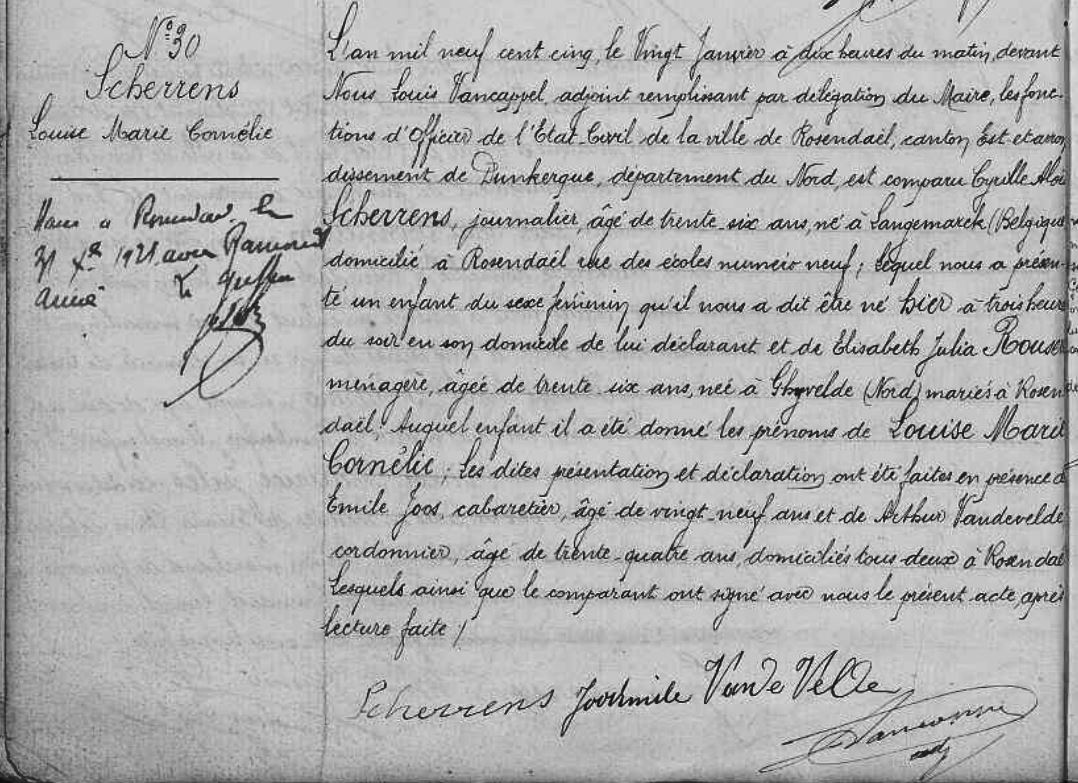 N° 30
Scherrens
Louise Marie Cornélie
à le
31 1921 avec Raimond
Le greffier
L'an mil neuf cent cinq, le Vingt Janvier à dix heures du matin, devant
Nous Louis Vancappel, adjoint remplissant par délégation du Maire, les fonc-
tions d'Officier de l'Etat-Civil de la ville de Rosendaël, canton Est et arron
dissement de Dunkerque, département du Nord, est comparu Cyrille Aloï
Scherrens, journalier, âgé de trente-six ans, né à Langemarck (Belgique
domicilié à Rosendaël rue des écoles numéro neuf; lequel nous a présen-
té un enfant du sexe féminin qu'il nous a dit être né hier à trois heure
du soir en son domicile de lui déclarant et de Elisabeth Julia Rouser
ménagère, âgée de trente-six ans, née à Ghyvelde (Nord) mariés à Rosen
daël. Auquel enfant il a été donné les prénoms de Louise Marie
Cornélie; Les dites présentation et déclaration ont été faites en présence d
Emile Joos, cabaretier, âgé de vingt-neuf ans et de Arthur Vandevelde
cordonnier, âgé de trente-quatre ans, domiciliés tous deux à Rosendaë
Lesquels ainsi que le comparant ont signé avec nous le présent acte, après
lecture faite /
Scherrens Joos Emile Van de Velde